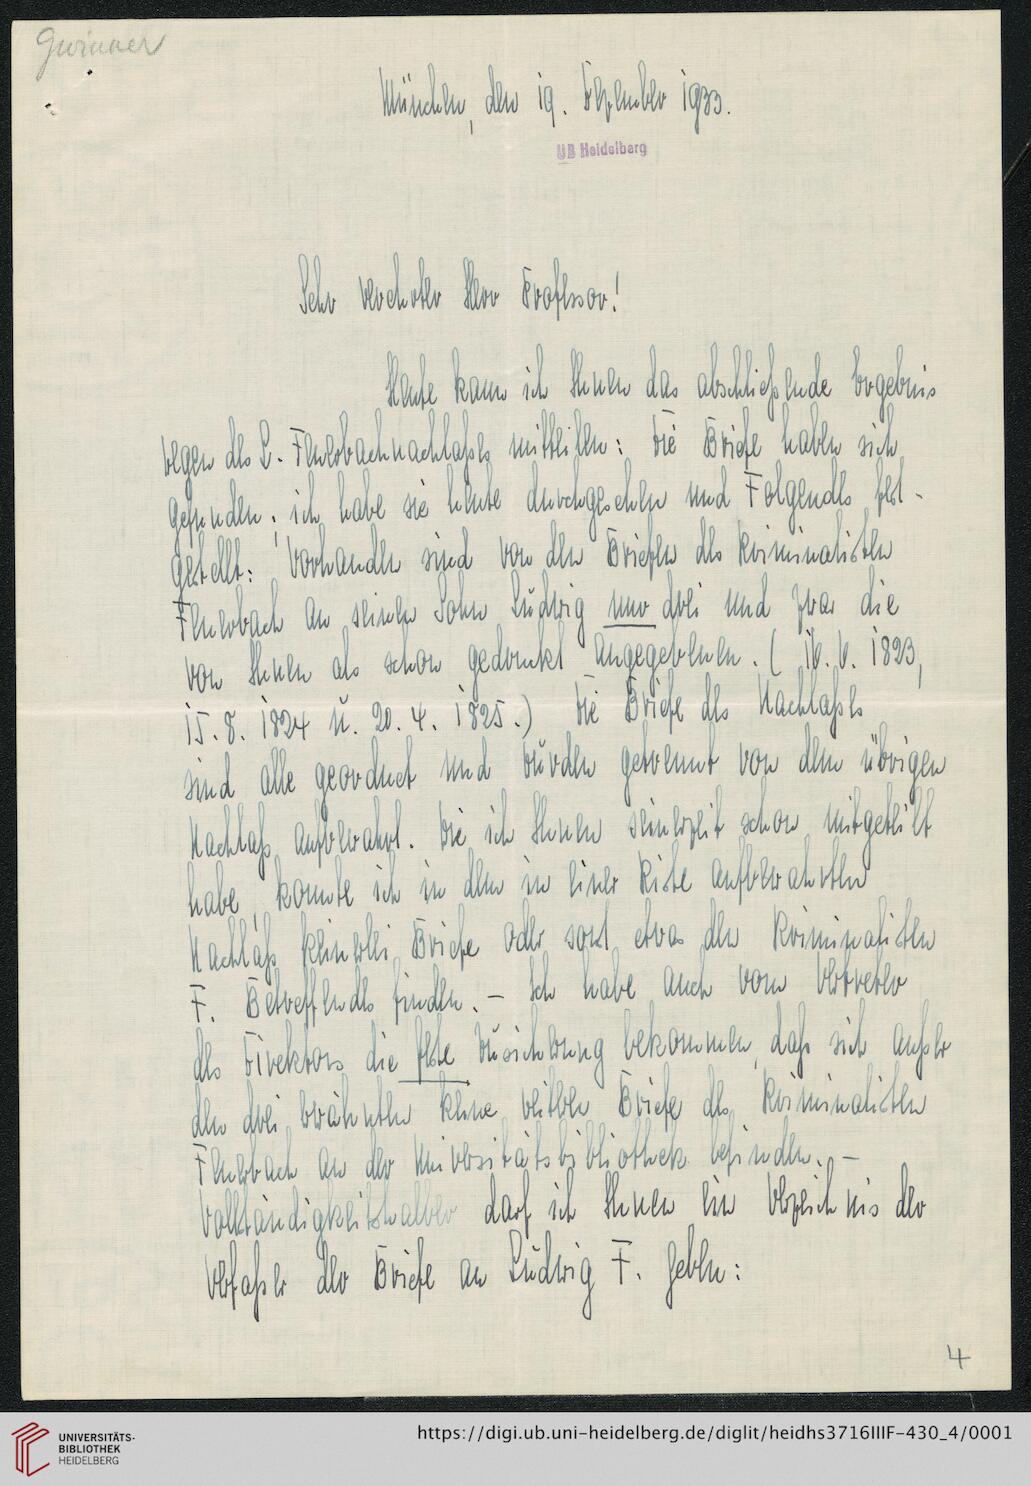 Gwinner
München, den 19. Dezember 1933.
UB Heidelberg
Sehr verehrter Herr Professor!
Heute kann ich Ihnen das abschließende Ergebnis
wegen des L. Feuerbachnachlaßes mitteilen: Die Briefe haben sich
gefunden; ich habe sie heute durchgesehen und Folgendes fest-
gestellt: Vorhanden sind von den Briefen des Kriminalisten
Feuerbach an seinen Sohn Ludwig nur drei und zwar die
von Ihnen als schon gedruckt angegebenen. ( 1823,
15. 8. 1824 u. 20. 4. 1825.) Die Briefe des Nachlaßes
sind alle geordnet und wurden getrennt von dem übrigen
Nachlaß aufbewahrt. Wie ich Ihnen seinerzeit schon mitgeteilt
habe, konnte ich in dem in einer Kiste aufbewahrten
Nachlaß keinerlei Briefe oder sonst etwas den Kriminalisten
F. Betreffendes finden. – Ich habe auch vom Vertreter
des Direktors die feste Zusicherung bekommen, daß sich außer
den drei erwähnten keine weiteren Briefe des Kriminalisten
Feuerbach an der Universitätsbibliothek befinden. –
Vollständigkeitshalber darf ich Ihnen ein Verzeichnis der
Verfaßer der Briefe an Ludwig F. geben:
4
UNIVERSITÄTS-
BIBLIOTHEK
HEIDELBERG
https://digi.ub.uni-heidelberg.de/diglit/heidhs3716IIIF-430_4/0001